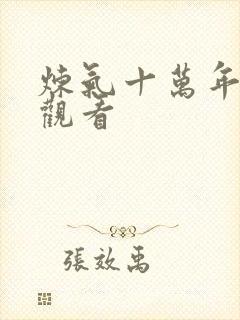 煉氣十萬年
觀看
張效禹